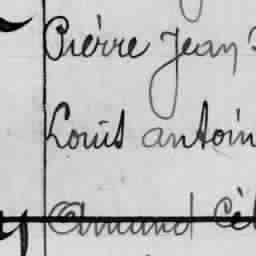 Pièrre Jean
Louis antoin
Amand Cél